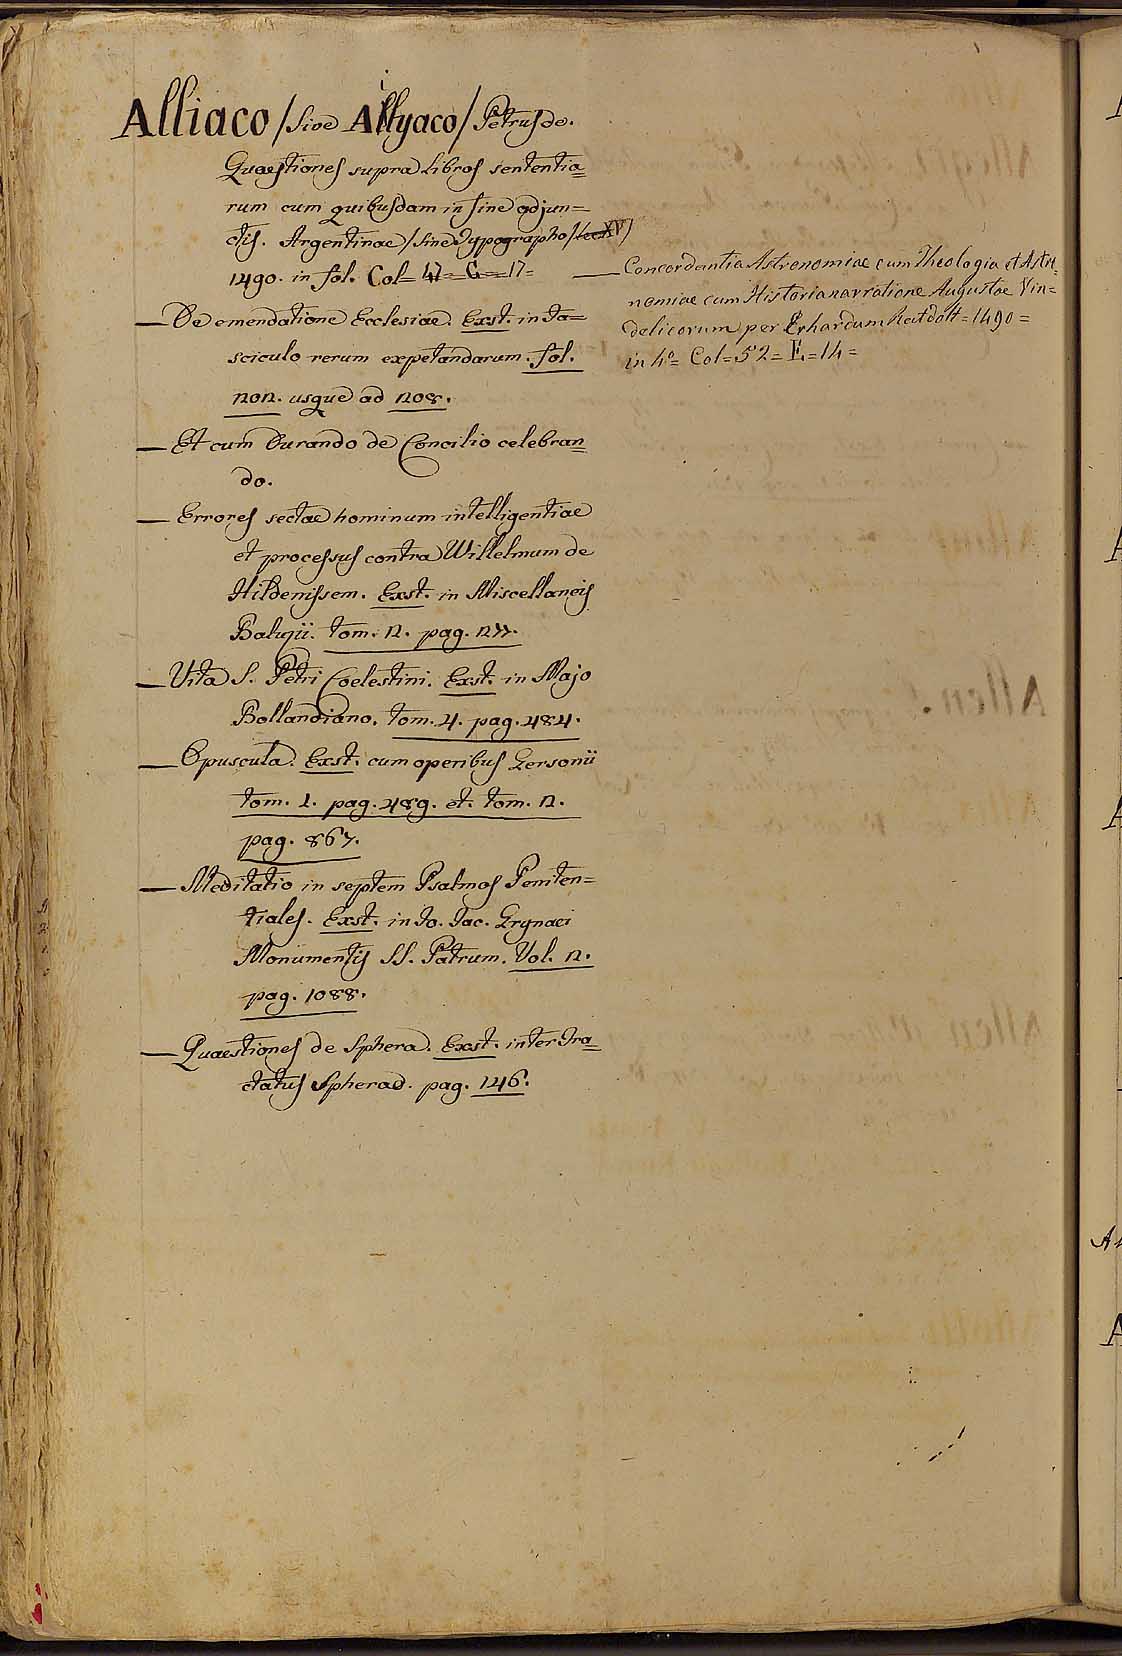 Alliaco / Sive Alyaco / Petrus de.
Quaestiones supra Libros sententia=
rum cum quibusdam in fine adjun=
ctis. Argentinae / sine Typographo /
1490. in fol. Col= 47= G=17=
— De emendatione Ecclesiae. Exst. in Fa=
sciculo rerum expetendarum. fol.
202. usque ad 208.
— Et cum Durando de Concilio celebran=
do.
— Errores sectae hominum intelligentiae
et processus contra Willelmum de
Hildenissem. Exst. in Miscellaneis
Baluzii. tom. 2. pag. 277.
— Vita S. Petri Coelestini. Exst. in Majo
Bollandiano. tom. 4. pag. 484.
— Opuscula. Exst. cum operibus Gersonii
tom. 1. pag. 489. et. tom. 2.
pag. 867.
— Meditatio in septem Psalmos Peniten=
tiales. Exst. in Jo. Jac. Grynaei
Monumentis SS. Patrum. Vol. 2.
pag. 1088.
— Quaestiones de Sphera. Exst. inter Tra=
ctatus Spherae. pag. 146.
— Concordantia Astronomiae cum Theologia et Astro=
nomiae cum Historia narratione Augustae Vin=
delicorum per Erhardum Ratdolt=1490=
in 4º= Col=52= E=14=